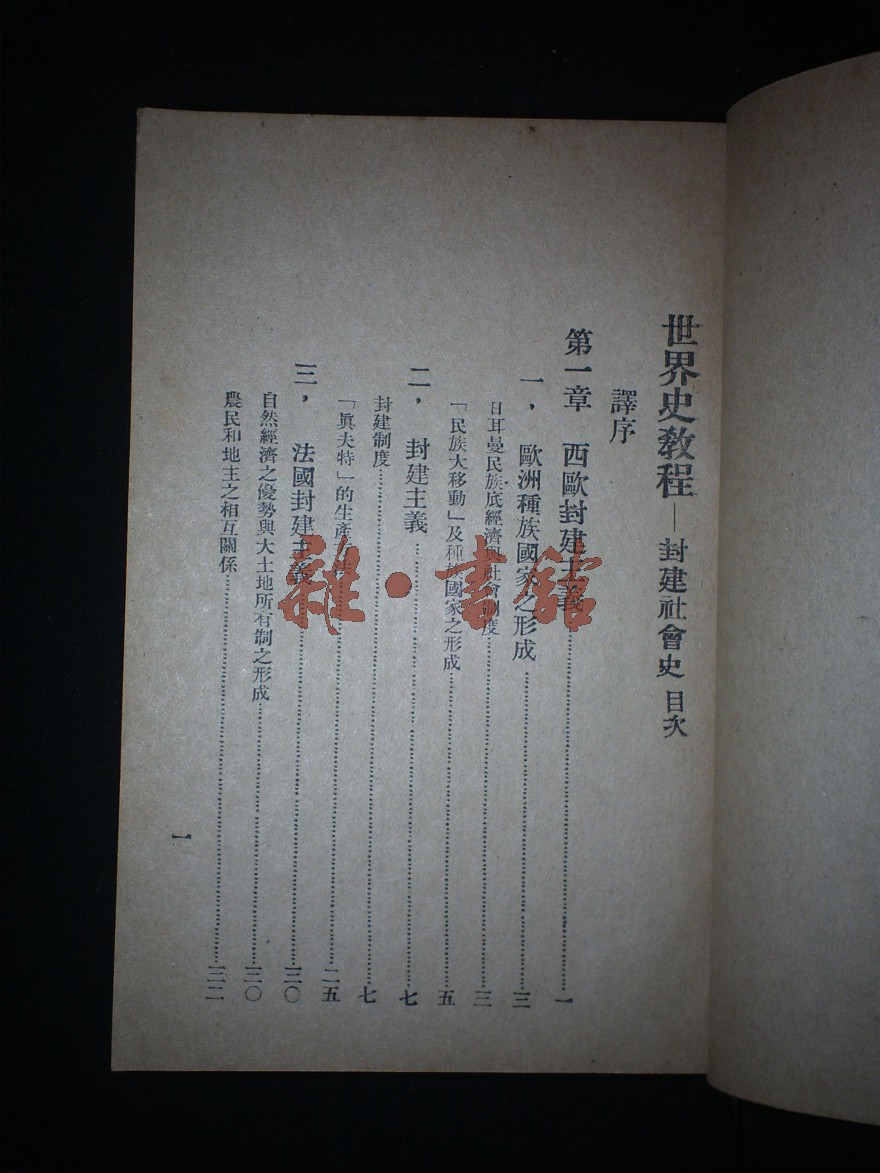 世界史敎程—封建社會史 目次
譯序
第一章 西歐封建主義……一
一，歐洲種族國家之形成……三
日耳曼民族底經濟與社會制度……三
「民族大移動」及種族國家之形成……五
二，封建主義……七
封建制度……七
「眞夫特」的生產……二五
三，法國封建主義……三〇
自然經濟之優勢與大土地所有制之形成……三〇
農民和地主之相互關係……三二
一
雜·書館